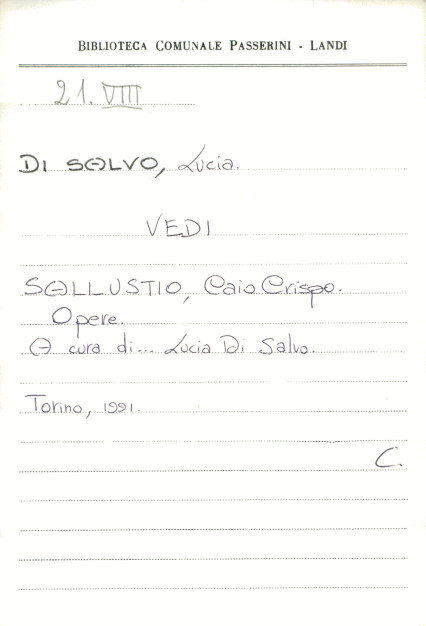 BIBLIOTECA COMUNALE PASSERINI - LANDI
21. VIII
DI SALVO, Lucia.
VEDI
SALLUSTIO, Caio Crispo.
Opere.
A cura di... Lucia Di Salvo.
Torino, 1991.
C.